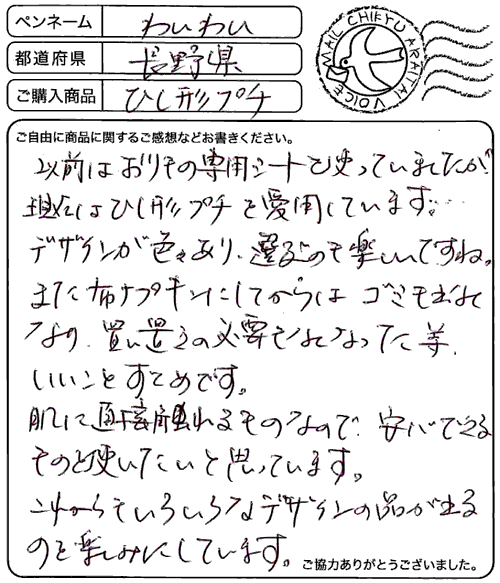 ペンネーム わいわい
都道府県 長野県
ご購入商品 ひし形プチ
MAIL CHIKYU ARAITAI VOICE
ご自由に商品に関するご感想などお書きください。
以前はおりもの専用シートを使っていましたが
現在はひし形プチを愛用しています。
デザインが色々あり、選ぶのも楽しいですね。
また布ナプキンにしてからは ゴミも出なく
なり、買い置きの必要もなくなった等、
いいことずくめです。
肌に直接触れるものなので、安心できる
ものを使いたいと思っています。
これからもいろいろなデザインの品が出る
のを楽しみにしています。
ご協力ありがとうございました。